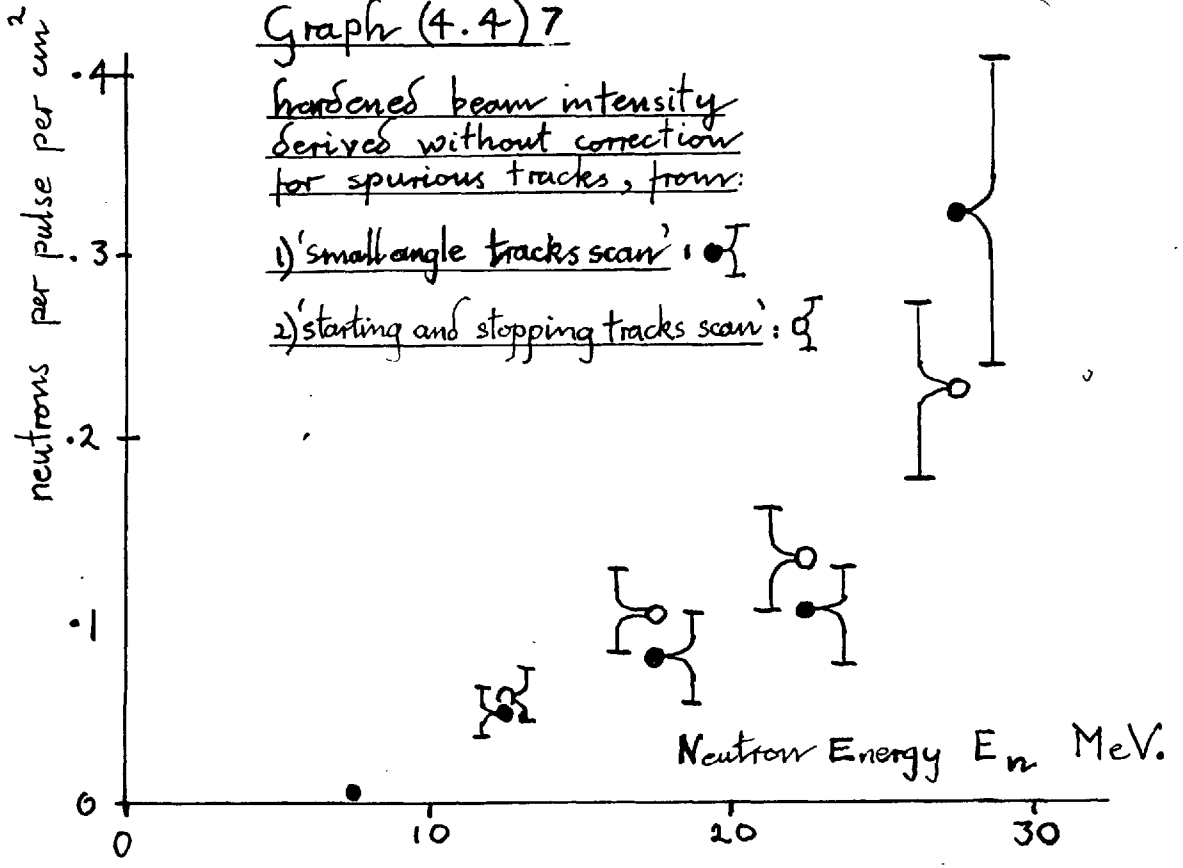 Graph (4.4) 7
hardened beam intensity
derived without correction
for spurious tracks, from:
1) 'small angle tracks scan' :
2) 'starting and stopping tracks scan' :
neutrons per pulse per cm²
.4
.3
.2
.1
0
0 10 20 30
Neutron Energy En MeV.